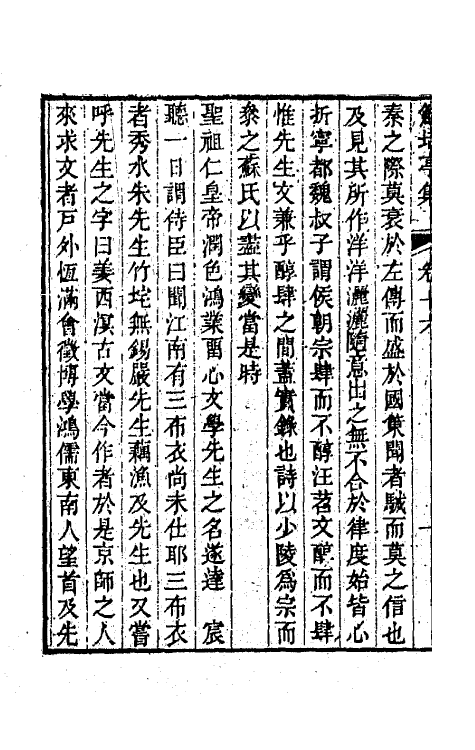 鮚埼亭集 卷十六
秦之際莫衰於左傳而盛於國策聞者駴而莫之信也
及見其所作洋洋灑灑隨意出之無不合於律度始皆心
折寧都魏叔子謂侯朝宗肆而不醇汪苕文醇而不肆
惟先生文兼乎醇肆之間蓋實錄也詩以少陵爲宗而
叅之蘇氏以盡其變當是時
聖祖仁皇帝潤色鴻業畱心文學先生之名遂達 宸
聽一日謂侍臣曰聞江南有三布衣尚未仕耶三布衣
者秀水朱先生竹垞無錫嚴先生藕漁及先生也又嘗
呼先生之字曰姜西溟古文當今作者於是京師之人
來求文者戸外恆滿會徵博學鴻儒東南人望首及先